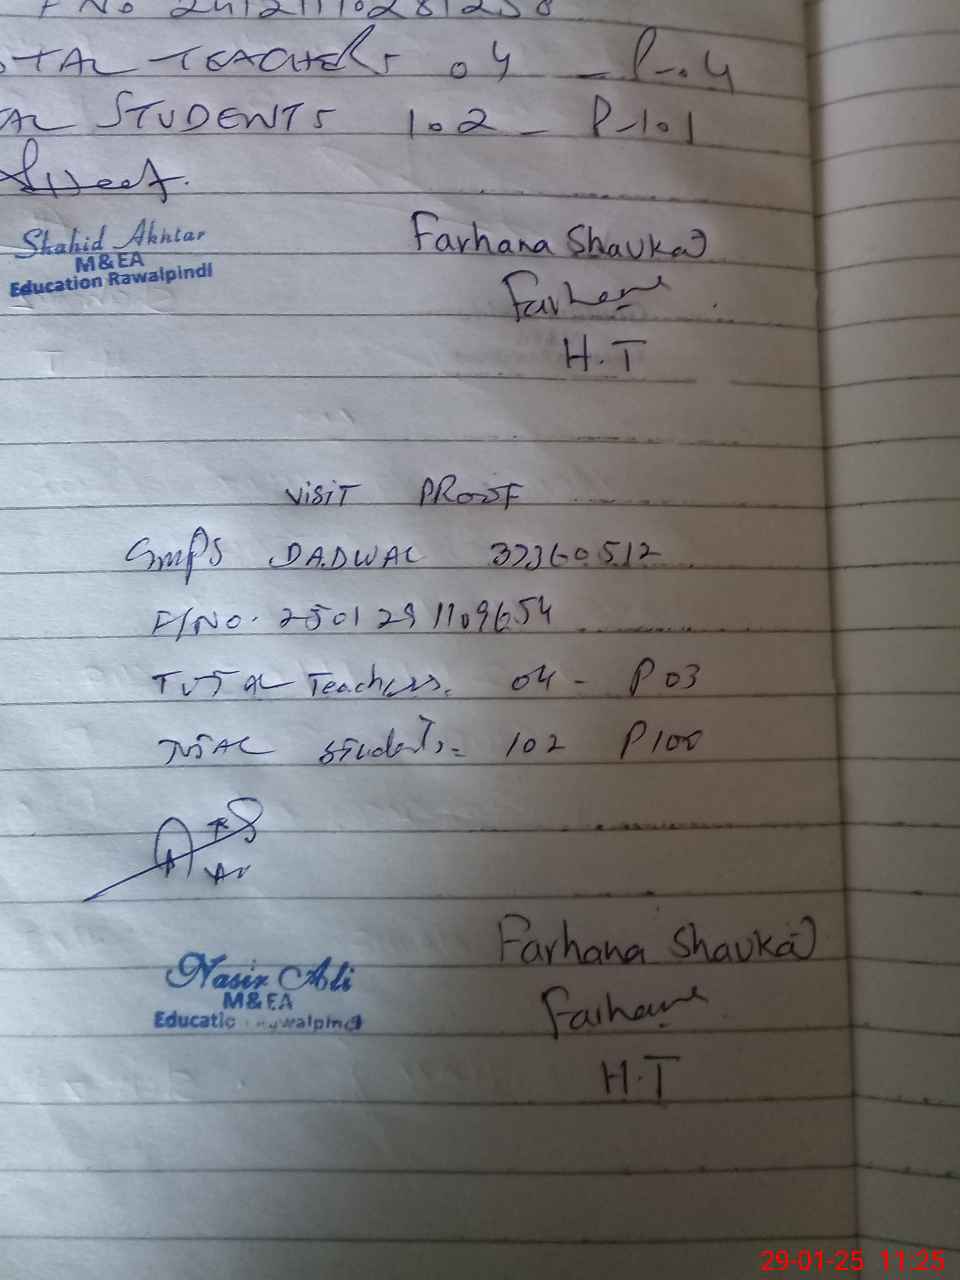 F No 241211110281258
OTAL TEACHERS 04 - P-04
AL STUDENTS 102 - P-101
Shahid Akhtar
M&EA
Education Rawalpindi
Farhana Shaukat
Farhana
H.T
VISIT PROOF
GMPS DADWAL 37360512
F/NO. 2501291109654
TOTAL Teachers. 04 - P 03
TOTAL students = 102 P100
Nasir Ali
M&EA
Farhana Shaukat
Farhana
H.T
29-01-25 11:25